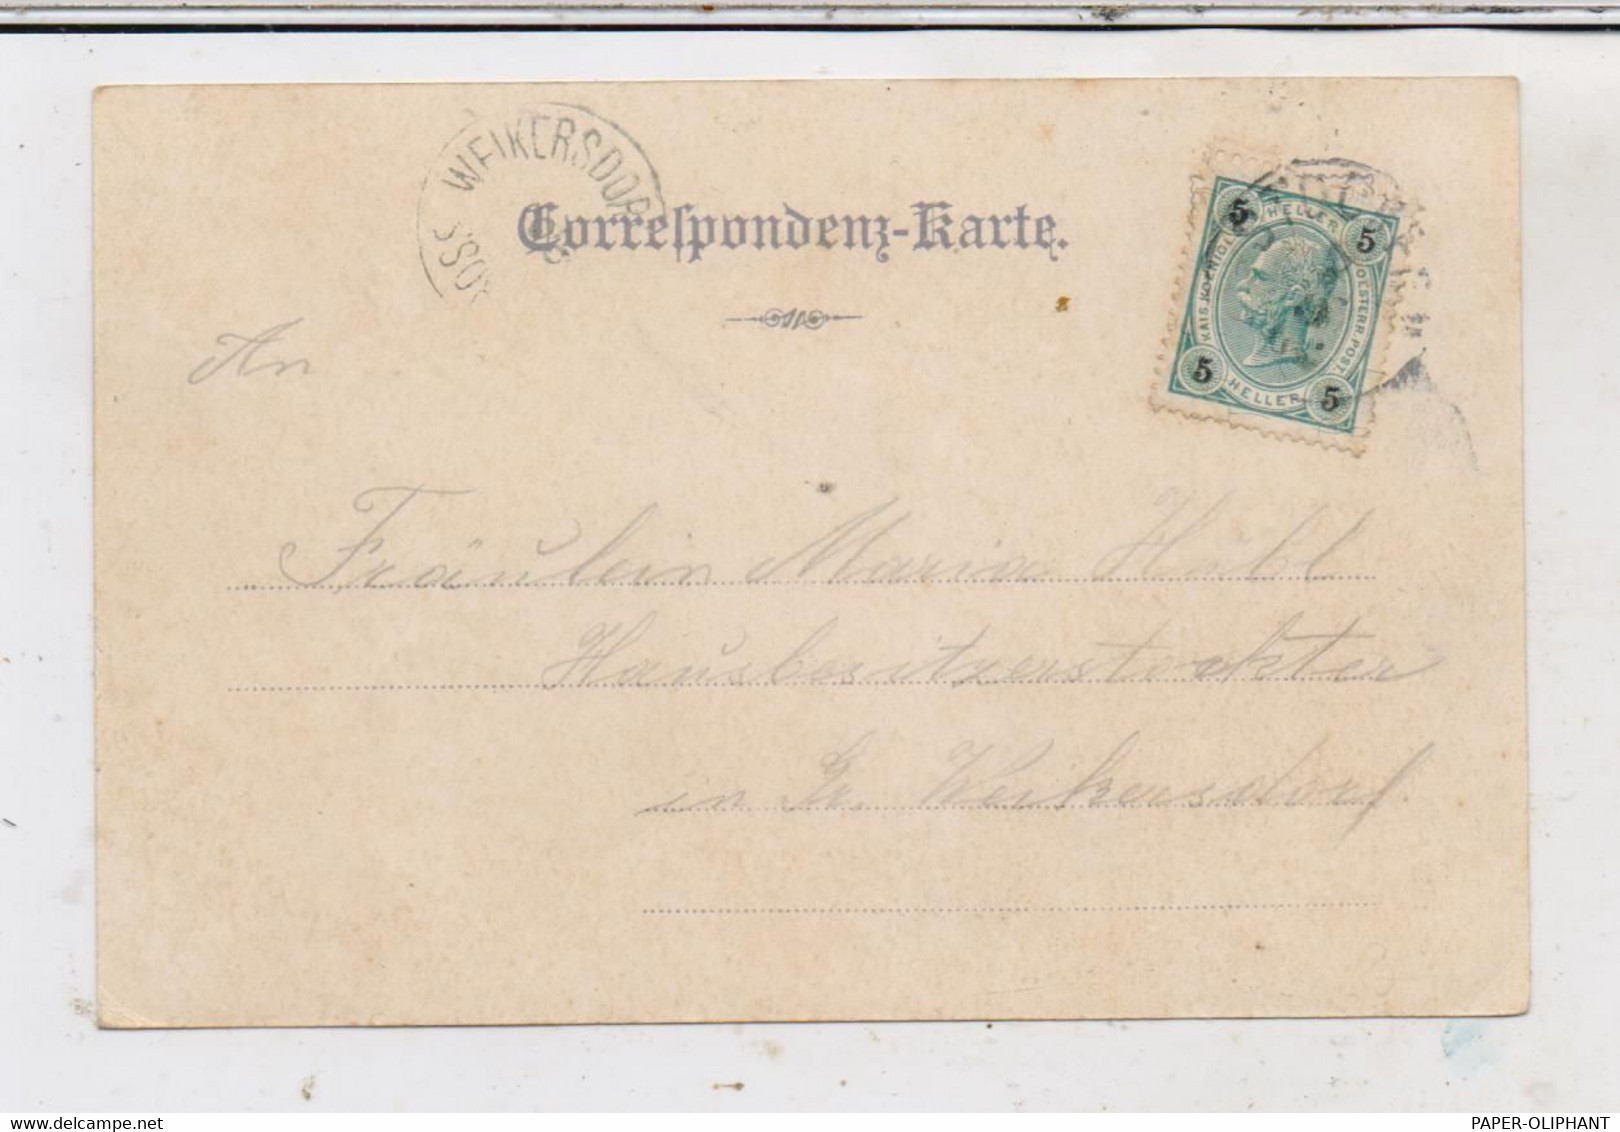 WEIKERSDORF
Correspondenz-Karte.
5 HELLER 5
KAIS. KOENIGL.
OESTERR. POST.
5 HELLER 5
An
Fräulein Maria Habl
Hausbesitzerstochter
in Gr. Weikersdorf
delcampe.net
PAPER-OLIPHANT